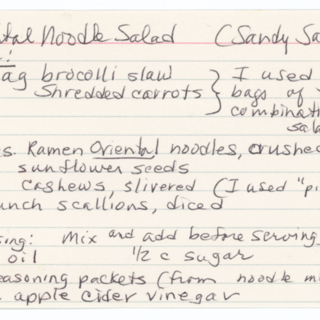 ntal Noodle Salad (Sandy Sa
:
ag brocolli slaw } I used
Shredded carrots } bags of
combinati
sala
s. Ramen Oriental noodles, crushed
sunflower seeds
cashews, slivered (I used "pi
unch scallions, diced
sing: Mix and add before serving
oil 1/2 c sugar
easoning packets (from noodle mi
apple cider vinegar